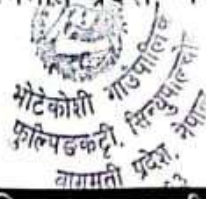 भोटेकोशी गाउँपालिका
फुल्पिङकट्टी, सिन्धुपाल्चोक
बागमती प्रदेश, नेपाल